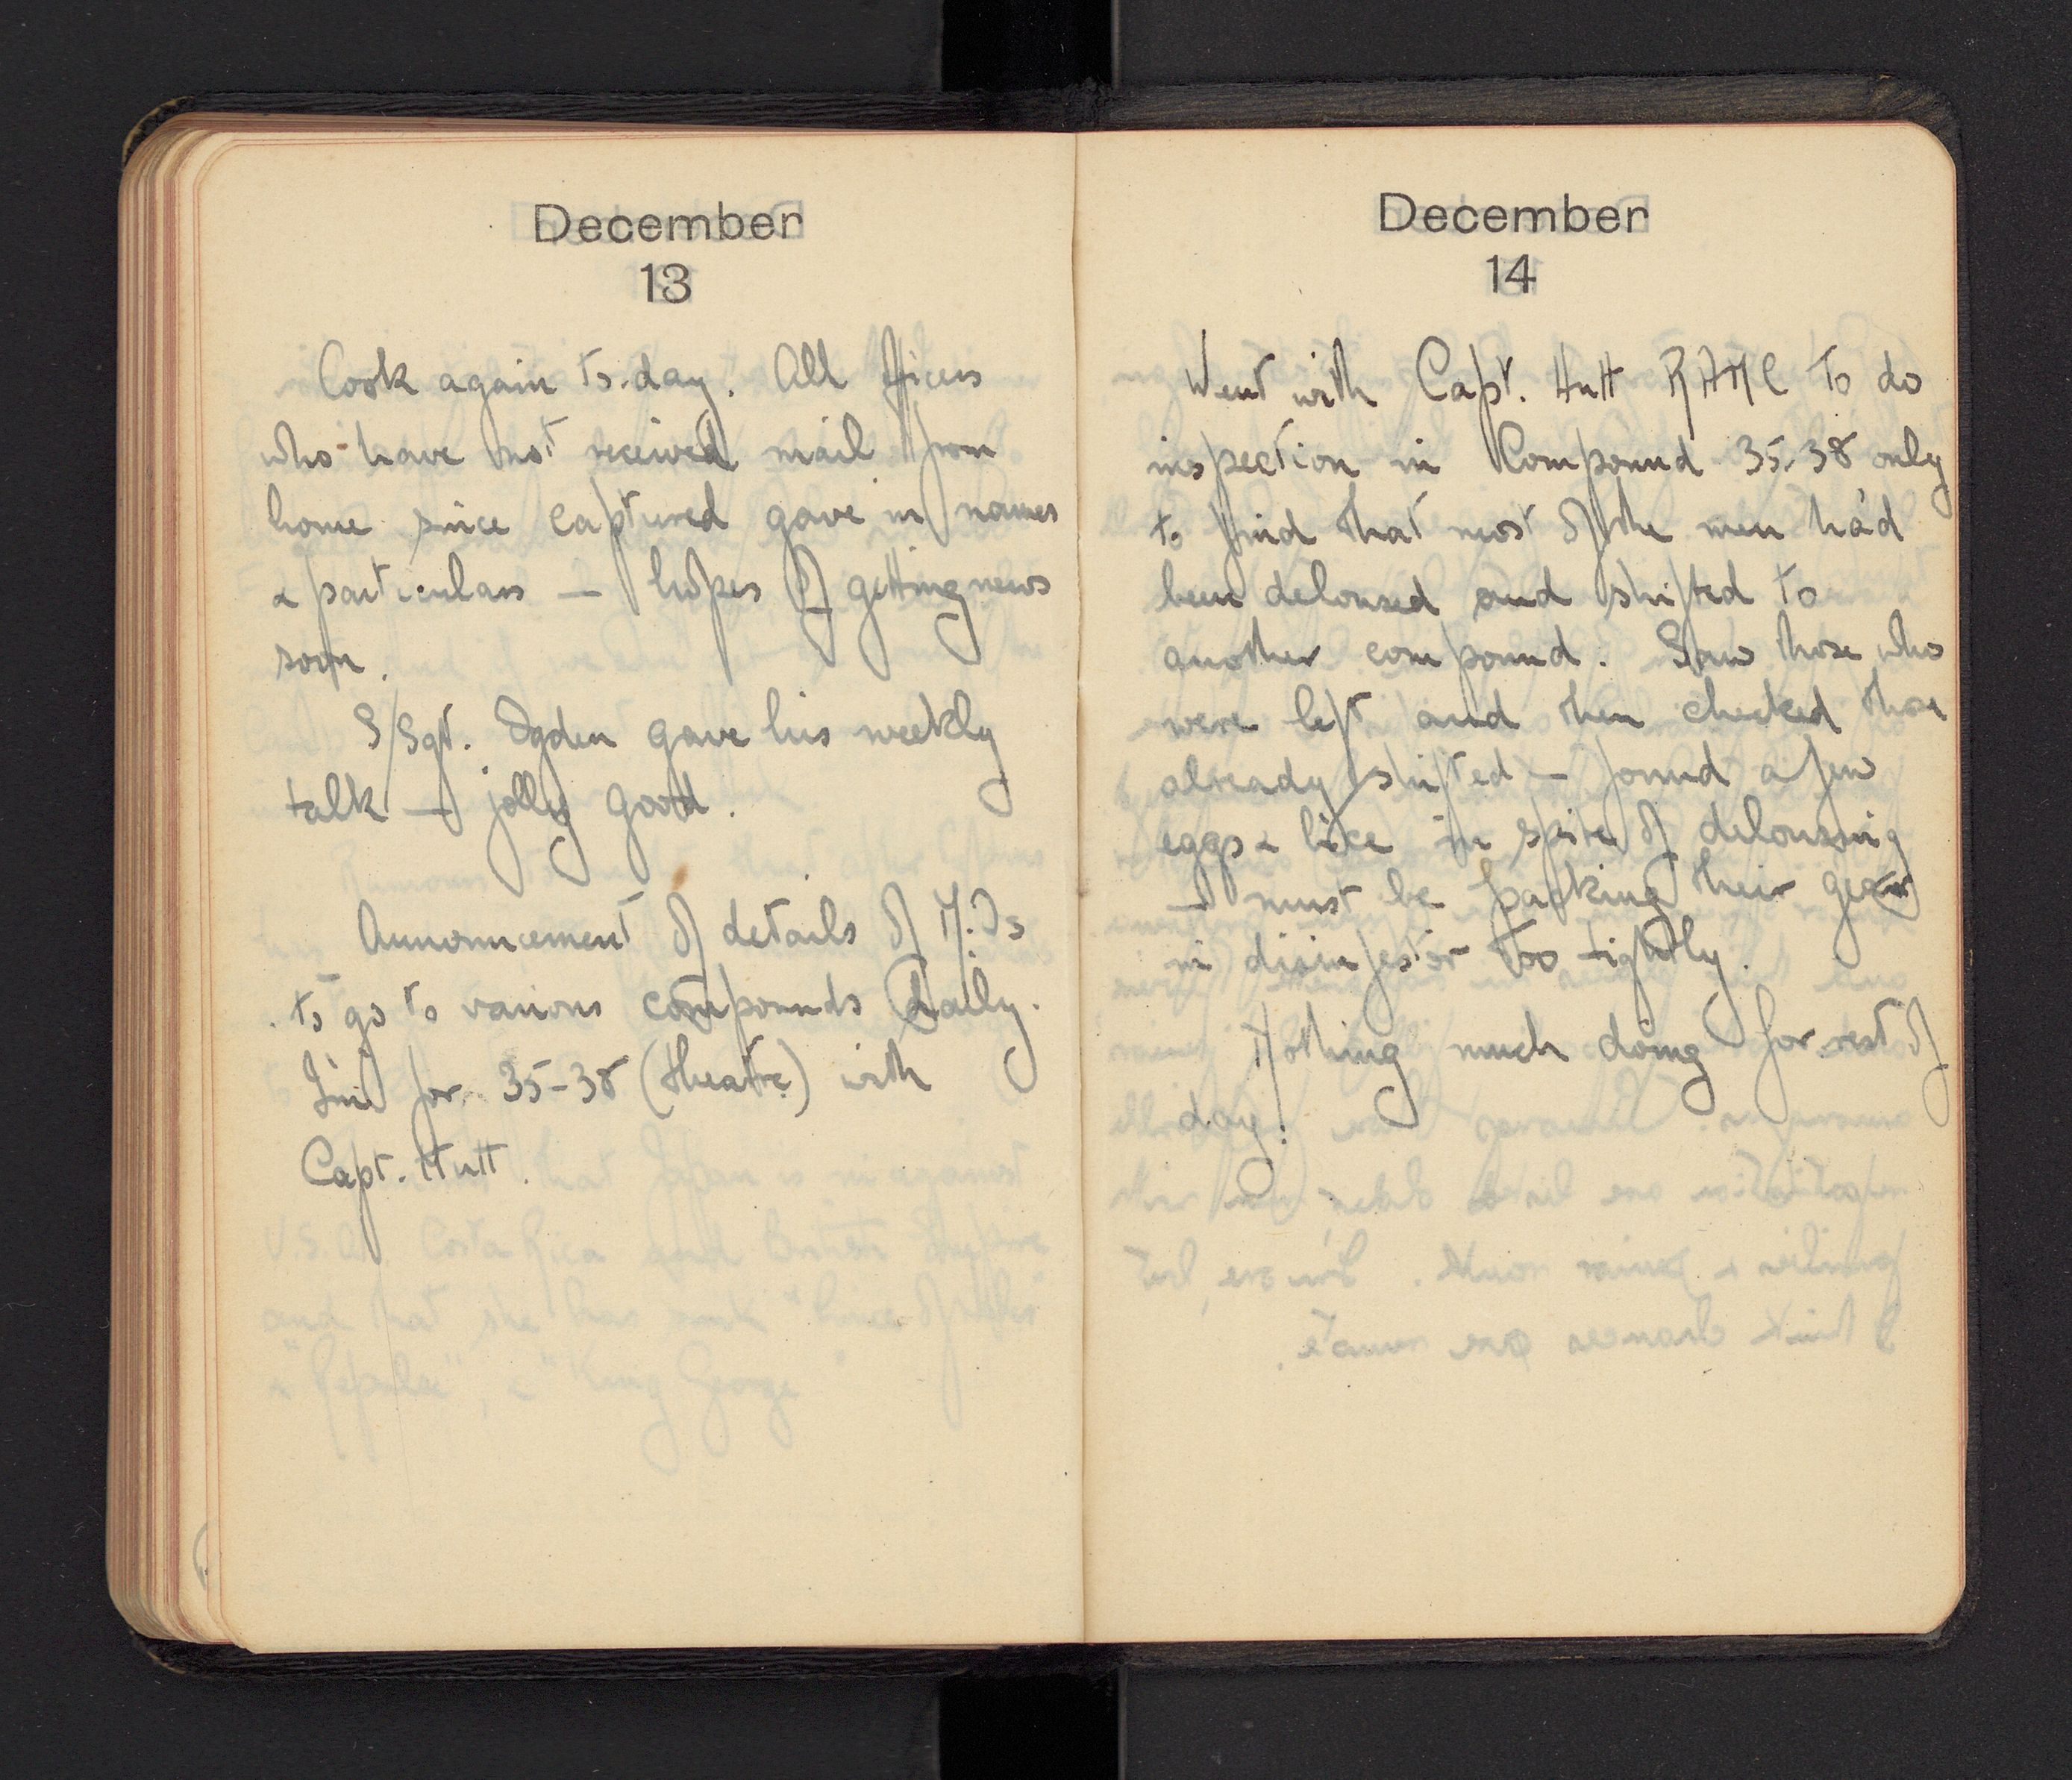 December
13
Cook again to-day. All officers
who have not received mail from
home since captured gave in names
& particulars — hopes of getting news
soon.
S/Sgt. Ogden gave his weekly
talk — jolly good.
Announcement of details of M.Os
to go to various compounds daily.
I'm for 35-38 (theatre) with
Capt. Hutt.
December
14
Went with Capt. Hutt RAMC to do
inspection in Compound 35-38 only
to find that most of the men had
been deloused and shifted to
another compound. Saw those who
were left and then checked those
already shifted — found a few
eggs & lice in spite of delousing
— must be packing their gear
in disinfestor too tightly.
Nothing much doing for rest of
day.